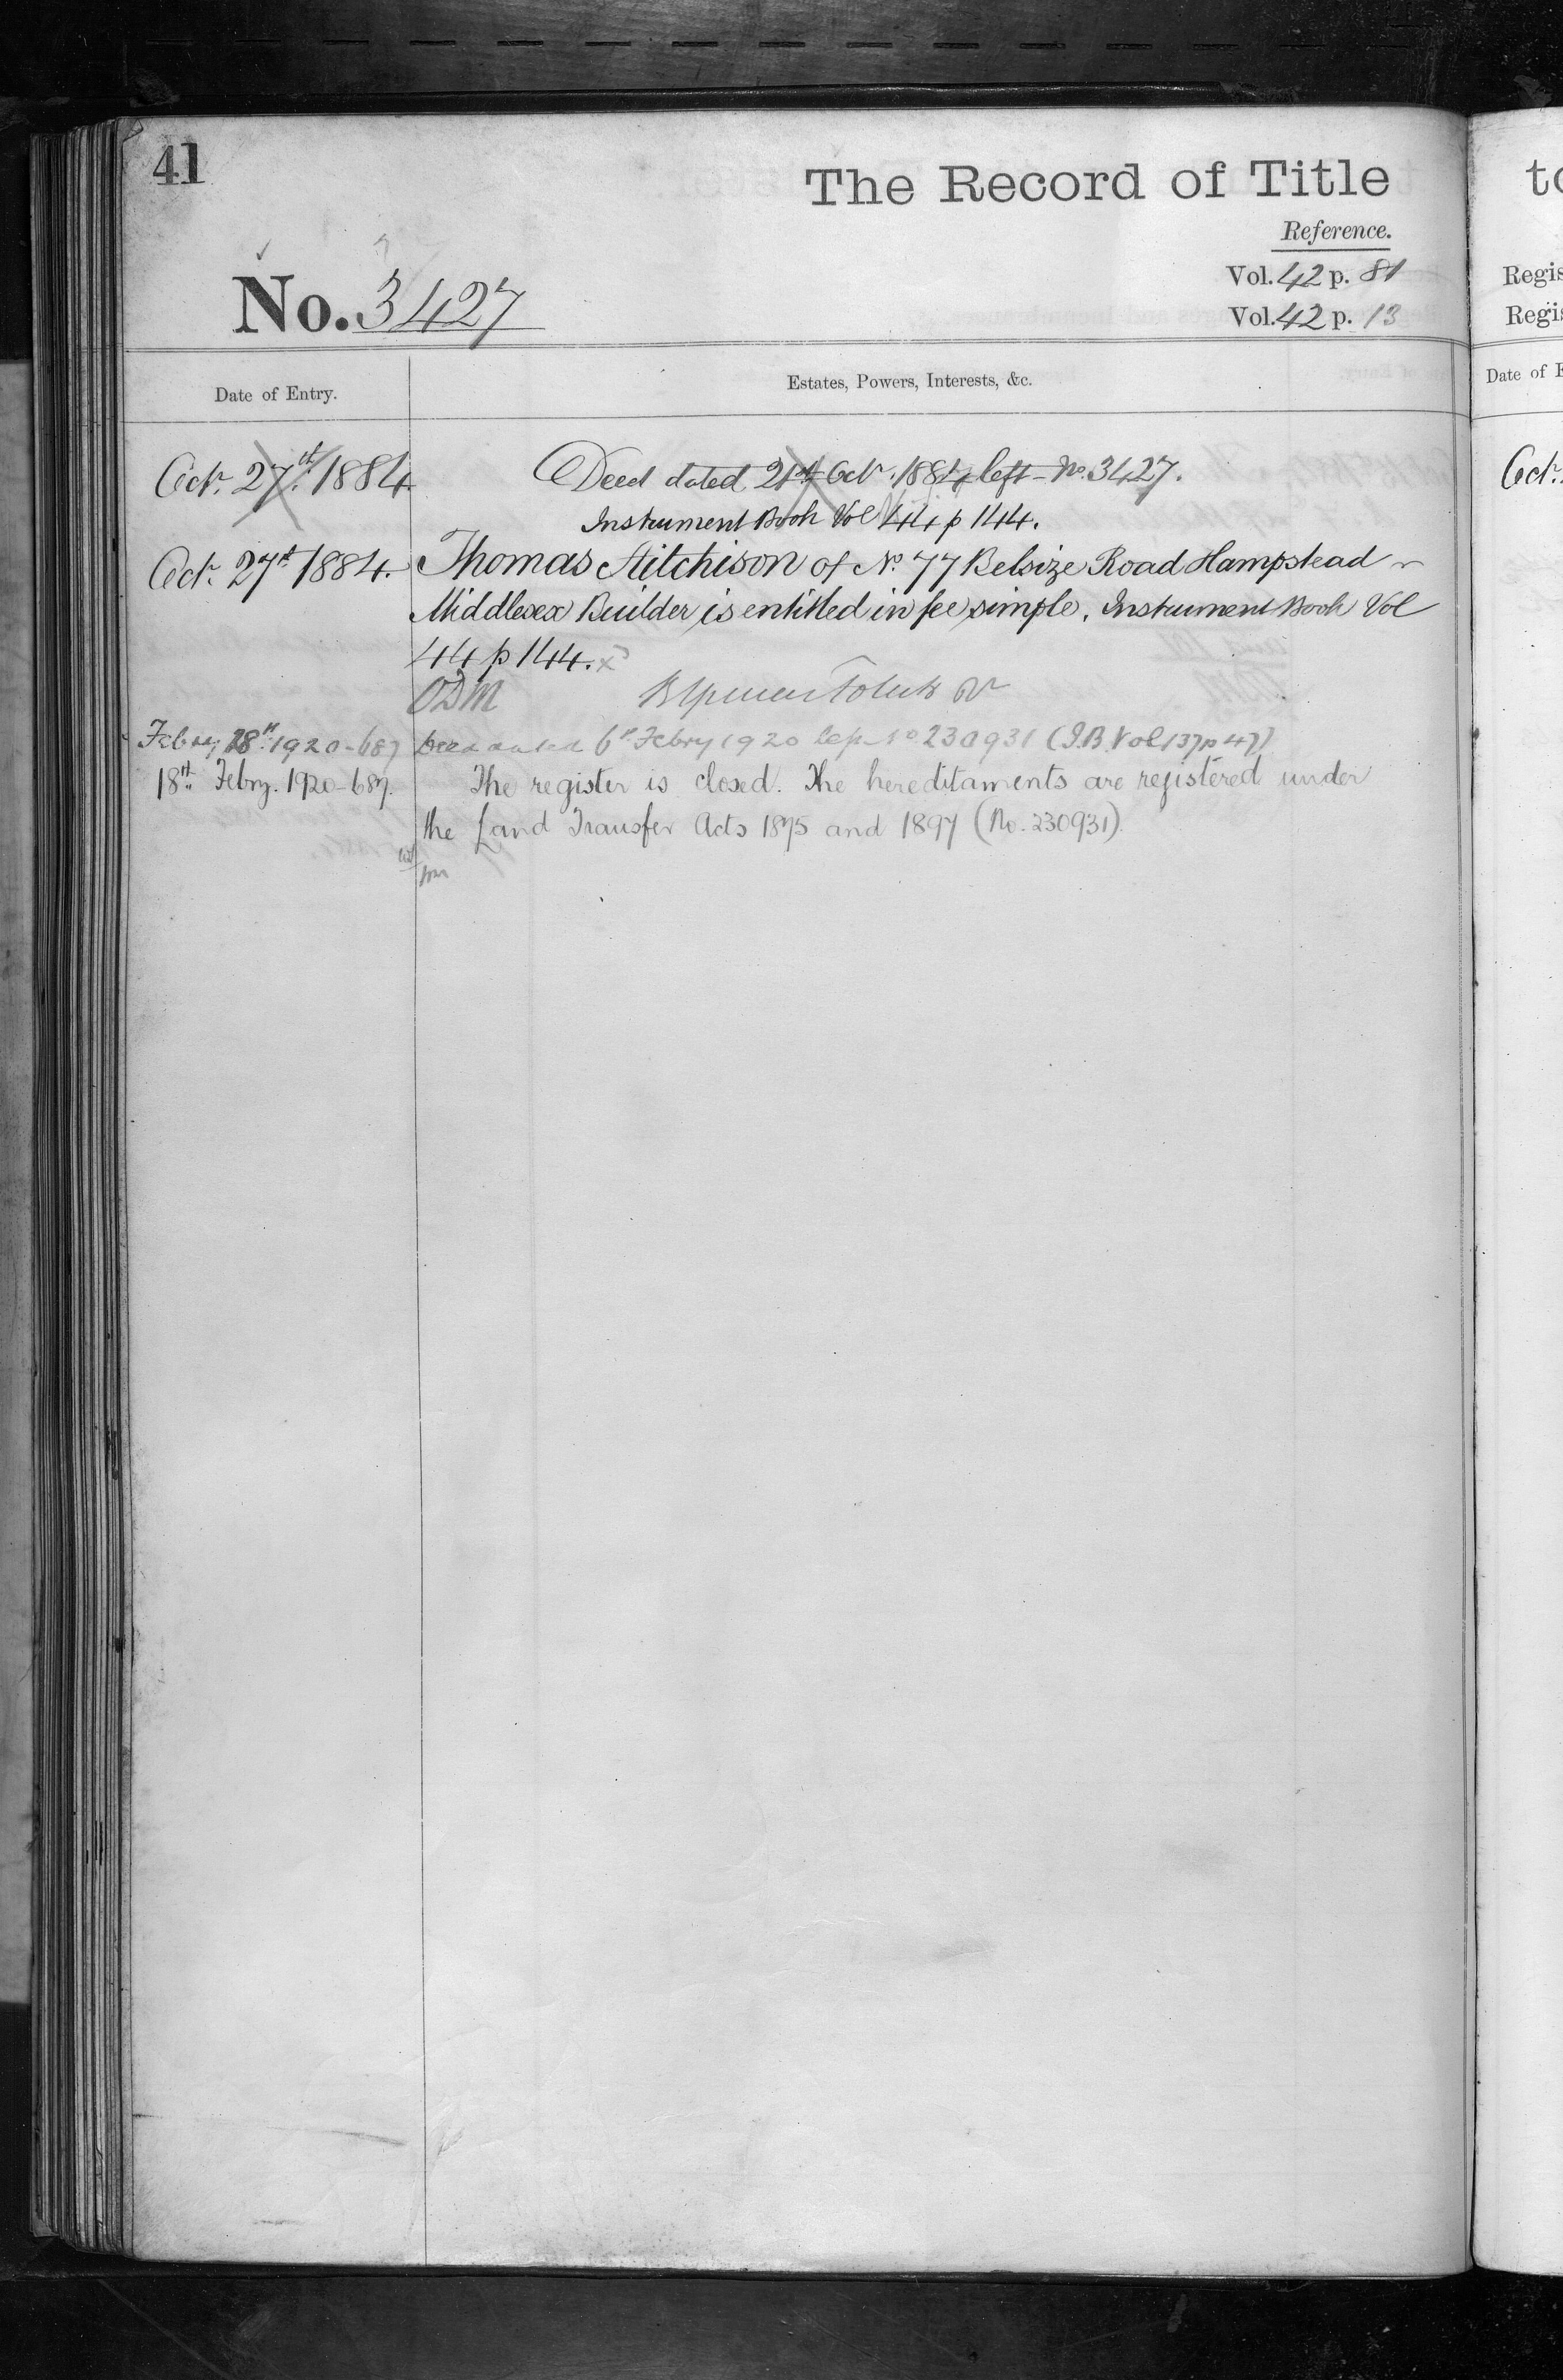 41
The Record of Title
Reference.
No. 3427
Vol. 42 p. 81
Vol. 42 p. 13
Date of Entry.
Estates, Powers, Interests, &c.
Octr. 27th. 1884.
Deed dated 21st Octr. 1884 left No. 3427.
Instrument Book Vol 44 p 144.
Octr. 27th 1884.
Thomas Aitchison of No. 77 Belsize Road Hampstead
Middlesex Builder is entitled in fee simple. Instrument Book Vol
44 p 144.
ODM
Febry 18th. 1920-687
Deed dated 6th Febry 1920 left No 230931 (I.B. Vol 137 p 47)
18th. Febry. 1920-687.
The register is closed. The hereditaments are registered under
the Land Transfer Acts 1875 and 1897 (No. 230931).
to
Regis
Regis
Date of E
Oct.